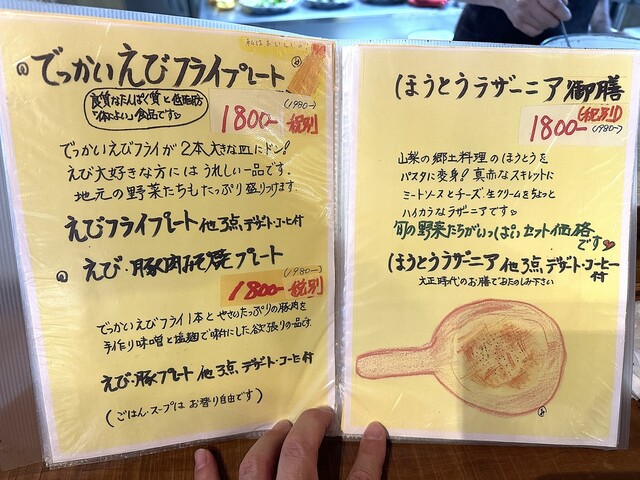 でっかいえびフライプレート
良質なたんぱく質と低脂肪
「体によい」食品です♡
(1980-)
1800- 税別
でっかいえびフライが2本大きな皿にドン!
えび大好きな方にはうれしい一品です。
地元の野菜たちもたっぷり盛りつけます。
えびフライプレート 他3点 デザート・コーヒー付
えび・豚肉みそ焼プレート
(1980-)
1800- 税別
でっかいえびフライ1本とやさいたっぷりの豚肉を
手作り味噌と塩麹で味付した欲張りの一品です。
えび・豚プレート 他3点 デザート・コーヒー付
(ごはん・スープは お替り自由です)
ほうとうラザーニア御膳
(税別)
1800- (1980-)
山梨の郷土料理のほうとうを
パスタに変身! 真赤なスキレットに
ミートソースとチーズ、生クリームをちょっと
ハイカラなラザーニアです♡
旬の野菜たちがいっぱいセット価格
です♥
ほうとうラザーニア 他3点 デザート・コーヒー
付
大正時代のお膳でおたのしみ下さい